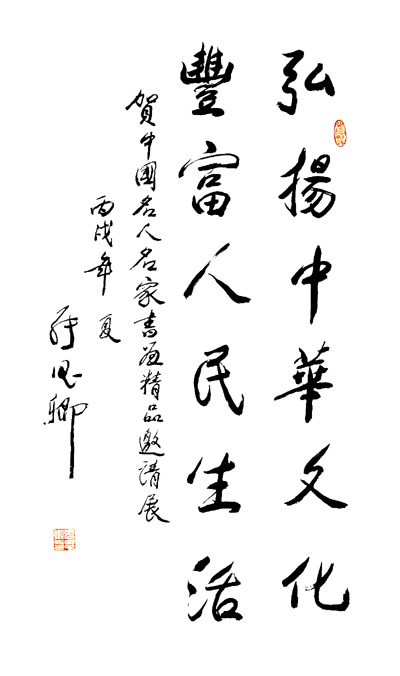 弘揚中華文化
豐富人民生活
賀中國名人名家書畫精品邀請展
丙戌年夏
張思卿